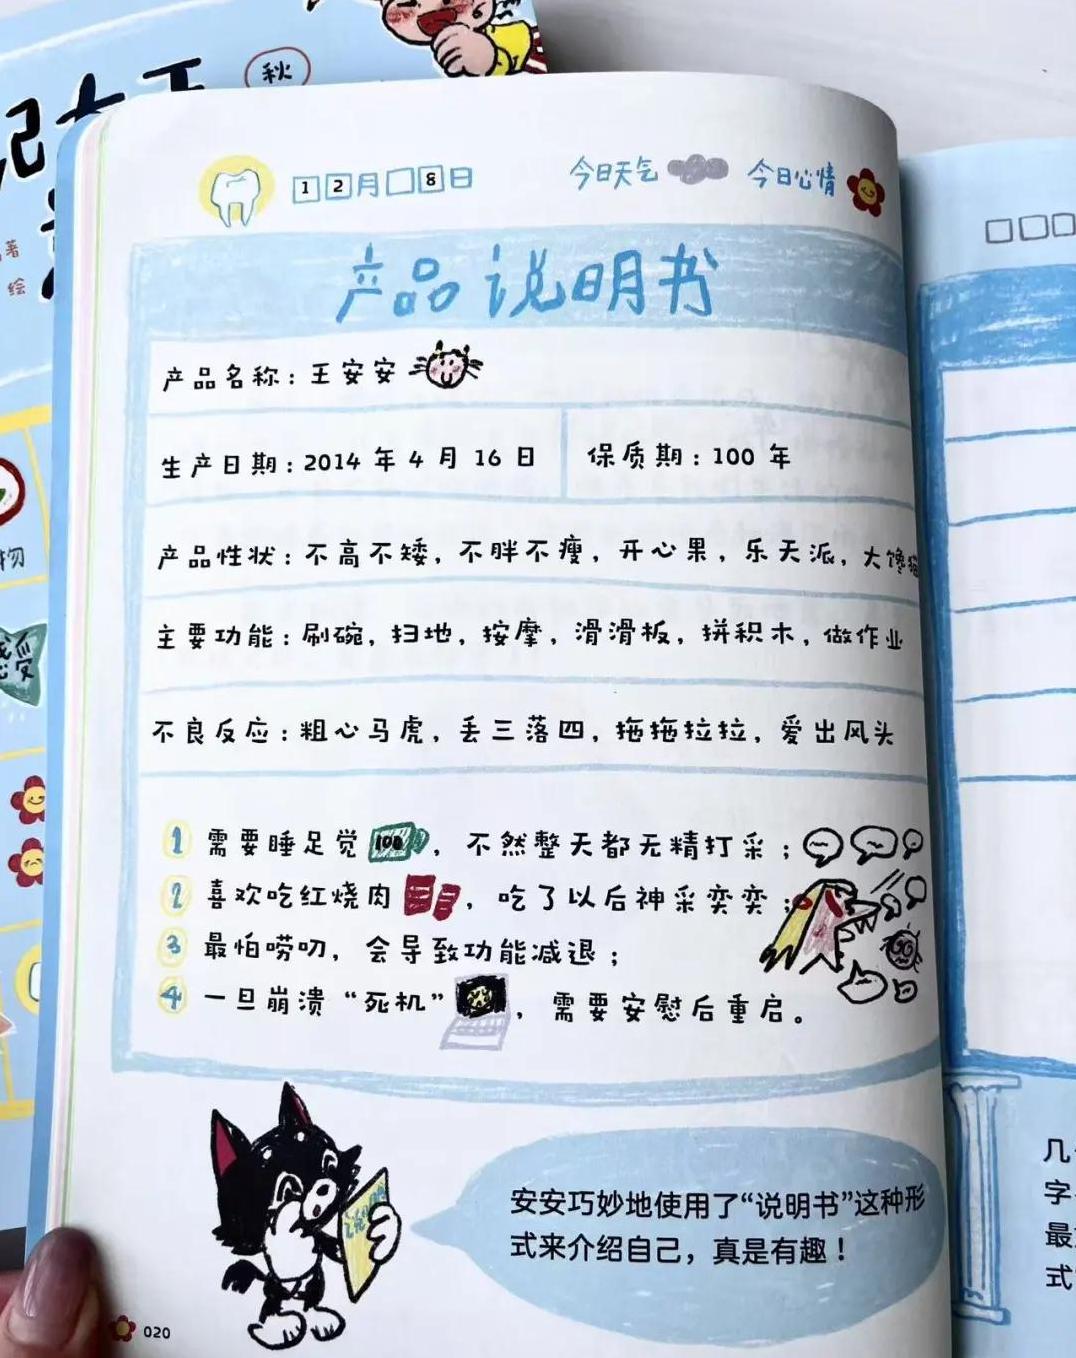 秋
记
著
绘
物
感受
12月 8日
今日天气
今日心情
产品说明书
产品名称：王安安
生产日期：2014年4月16日
保质期：100年
产品性状：不高不矮，不胖不瘦，开心果，乐天派，大馋猫
主要功能：刷碗，扫地，按摩，滑滑板，拼积木，做作业
不良反应：粗心马虎，丢三落四，拖拖拉拉，爱出风头
1 需要睡足觉100，不然整天都无精打采；
2 喜欢吃红烧肉，吃了以后神采奕奕；
3 最怕唠叨，会导致功能减退；
4 一旦崩溃“死机”，需要安慰后重启。
说明书
安安巧妙地使用了“说明书”这种形
式来介绍自己，真是有趣！
020
几
字
最
式